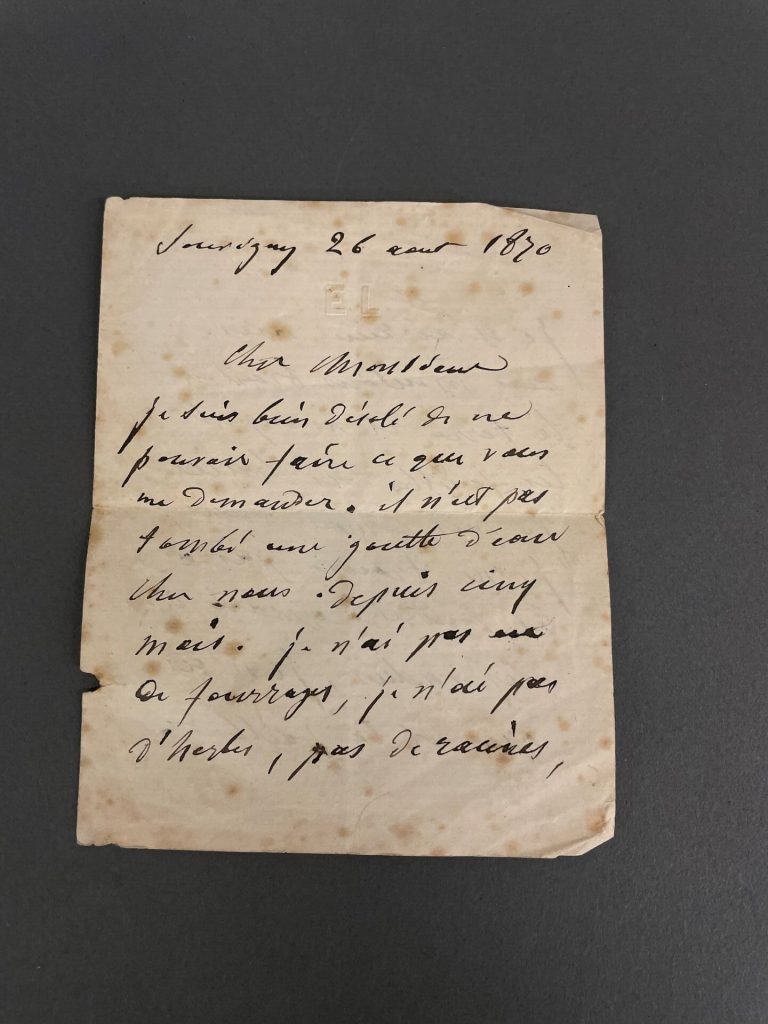 Souvigny 26 aout 1870
EL
Cher Monsieur
je suis bien désolé de ne
pouvoir faire ce que vous
me demandez. il n'est pas
tombé une goutte d'eau
chez nous. depuis cinq
mois. je n'ai pas eu
de fourrages, je n'ai pas
d'herbes, pas de racines,